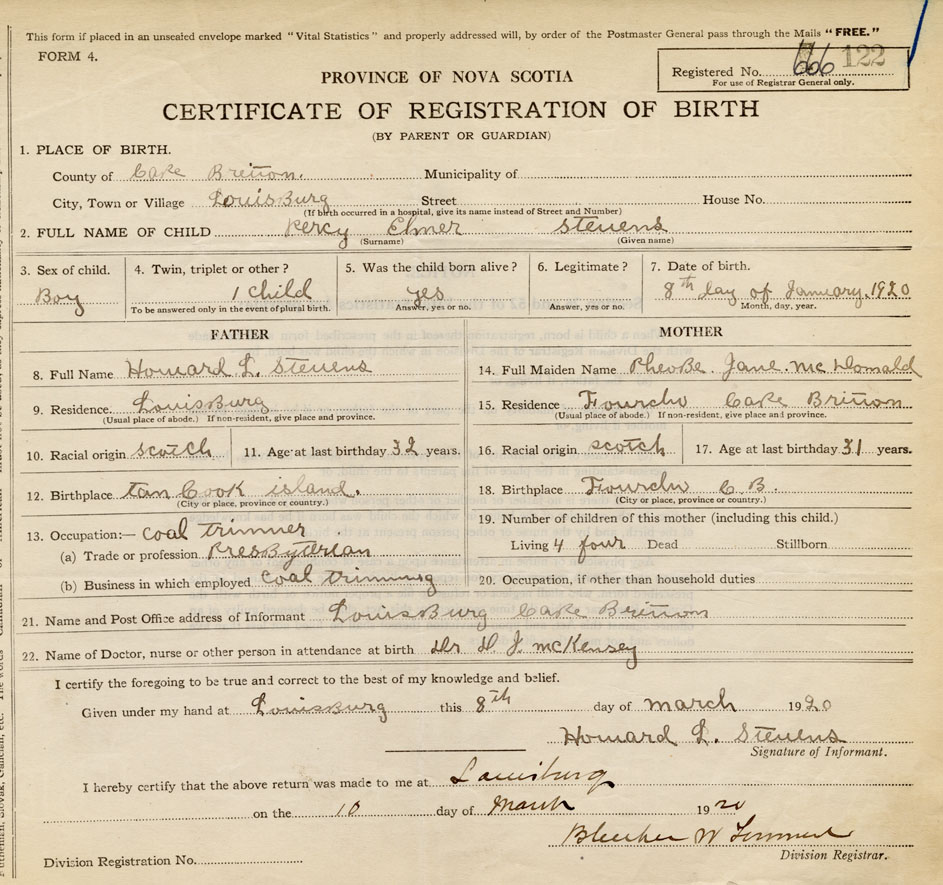 This form if placed in an unsealed envelope marked "Vital Statistics" and properly addressed will, by order of the Postmaster General pass through the Mails "FREE."
FORM 4.
Registered No. 666 122
For use of Registrar General only.
PROVINCE OF NOVA SCOTIA
CERTIFICATE OF REGISTRATION OF BIRTH
(BY PARENT OR GUARDIAN)
1. PLACE OF BIRTH.
County of Cake Brition. Municipality of
City, Town or Village LouisBurg Street House No.
(If birth occurred in a hospital, give its name instead of Street and Number)
2. FULL NAME OF CHILD Percy Elmer Stevens
(Surname) (Given name)
3. Sex of child. Boy
4. Twin, triplet or other? 1 Child
To be answered only in the event of plural birth.
5. Was the child born alive? yes
Answer, yes or no.
6. Legitimate?
Answer, yes or no.
7. Date of birth.
8th day of January. 1920
Month, day, year.
FATHER
8. Full Name Howard L. Stevens
9. Residence. LouisBurg
(Usual place of abode.) If non-resident, give place and province.
10. Racial origin scotch 11. Age at last birthday 32 years.
12. Birthplace tan Cook island.
(City or place, province or country.)
13. Occupation:— Coal trimmer
(a) Trade or profession PresByterian
(b) Business in which employed Coal trimming
MOTHER
14. Full Maiden Name PheoBe. Jane. Mc Donald
15. Residence Fourchu Cake Brition
(Usual place of abode.) If non-resident, give place and province.
16. Racial origin scotch 17. Age at last birthday 31 years.
18. Birthplace Fourchu C B.
(City or place, province or country.)
19. Number of children of this mother (including this child.)
Living 4 four Dead Stillborn
20. Occupation, if other than household duties
21. Name and Post Office address of Informant LouisBurg Cake Brition
22. Name of Doctor, nurse or other person in attendance at birth Dr D J McKensey
I certify the foregoing to be true and correct to the best of my knowledge and belief.
Given under my hand at LouisBurg this 8th day of march 1920
Howard L. Stevens
Signature of Informant.
I hereby certify that the above return was made to me at Louisburg
on the 10 day of March 1920
W
Division Registrar.
Division Registration No.